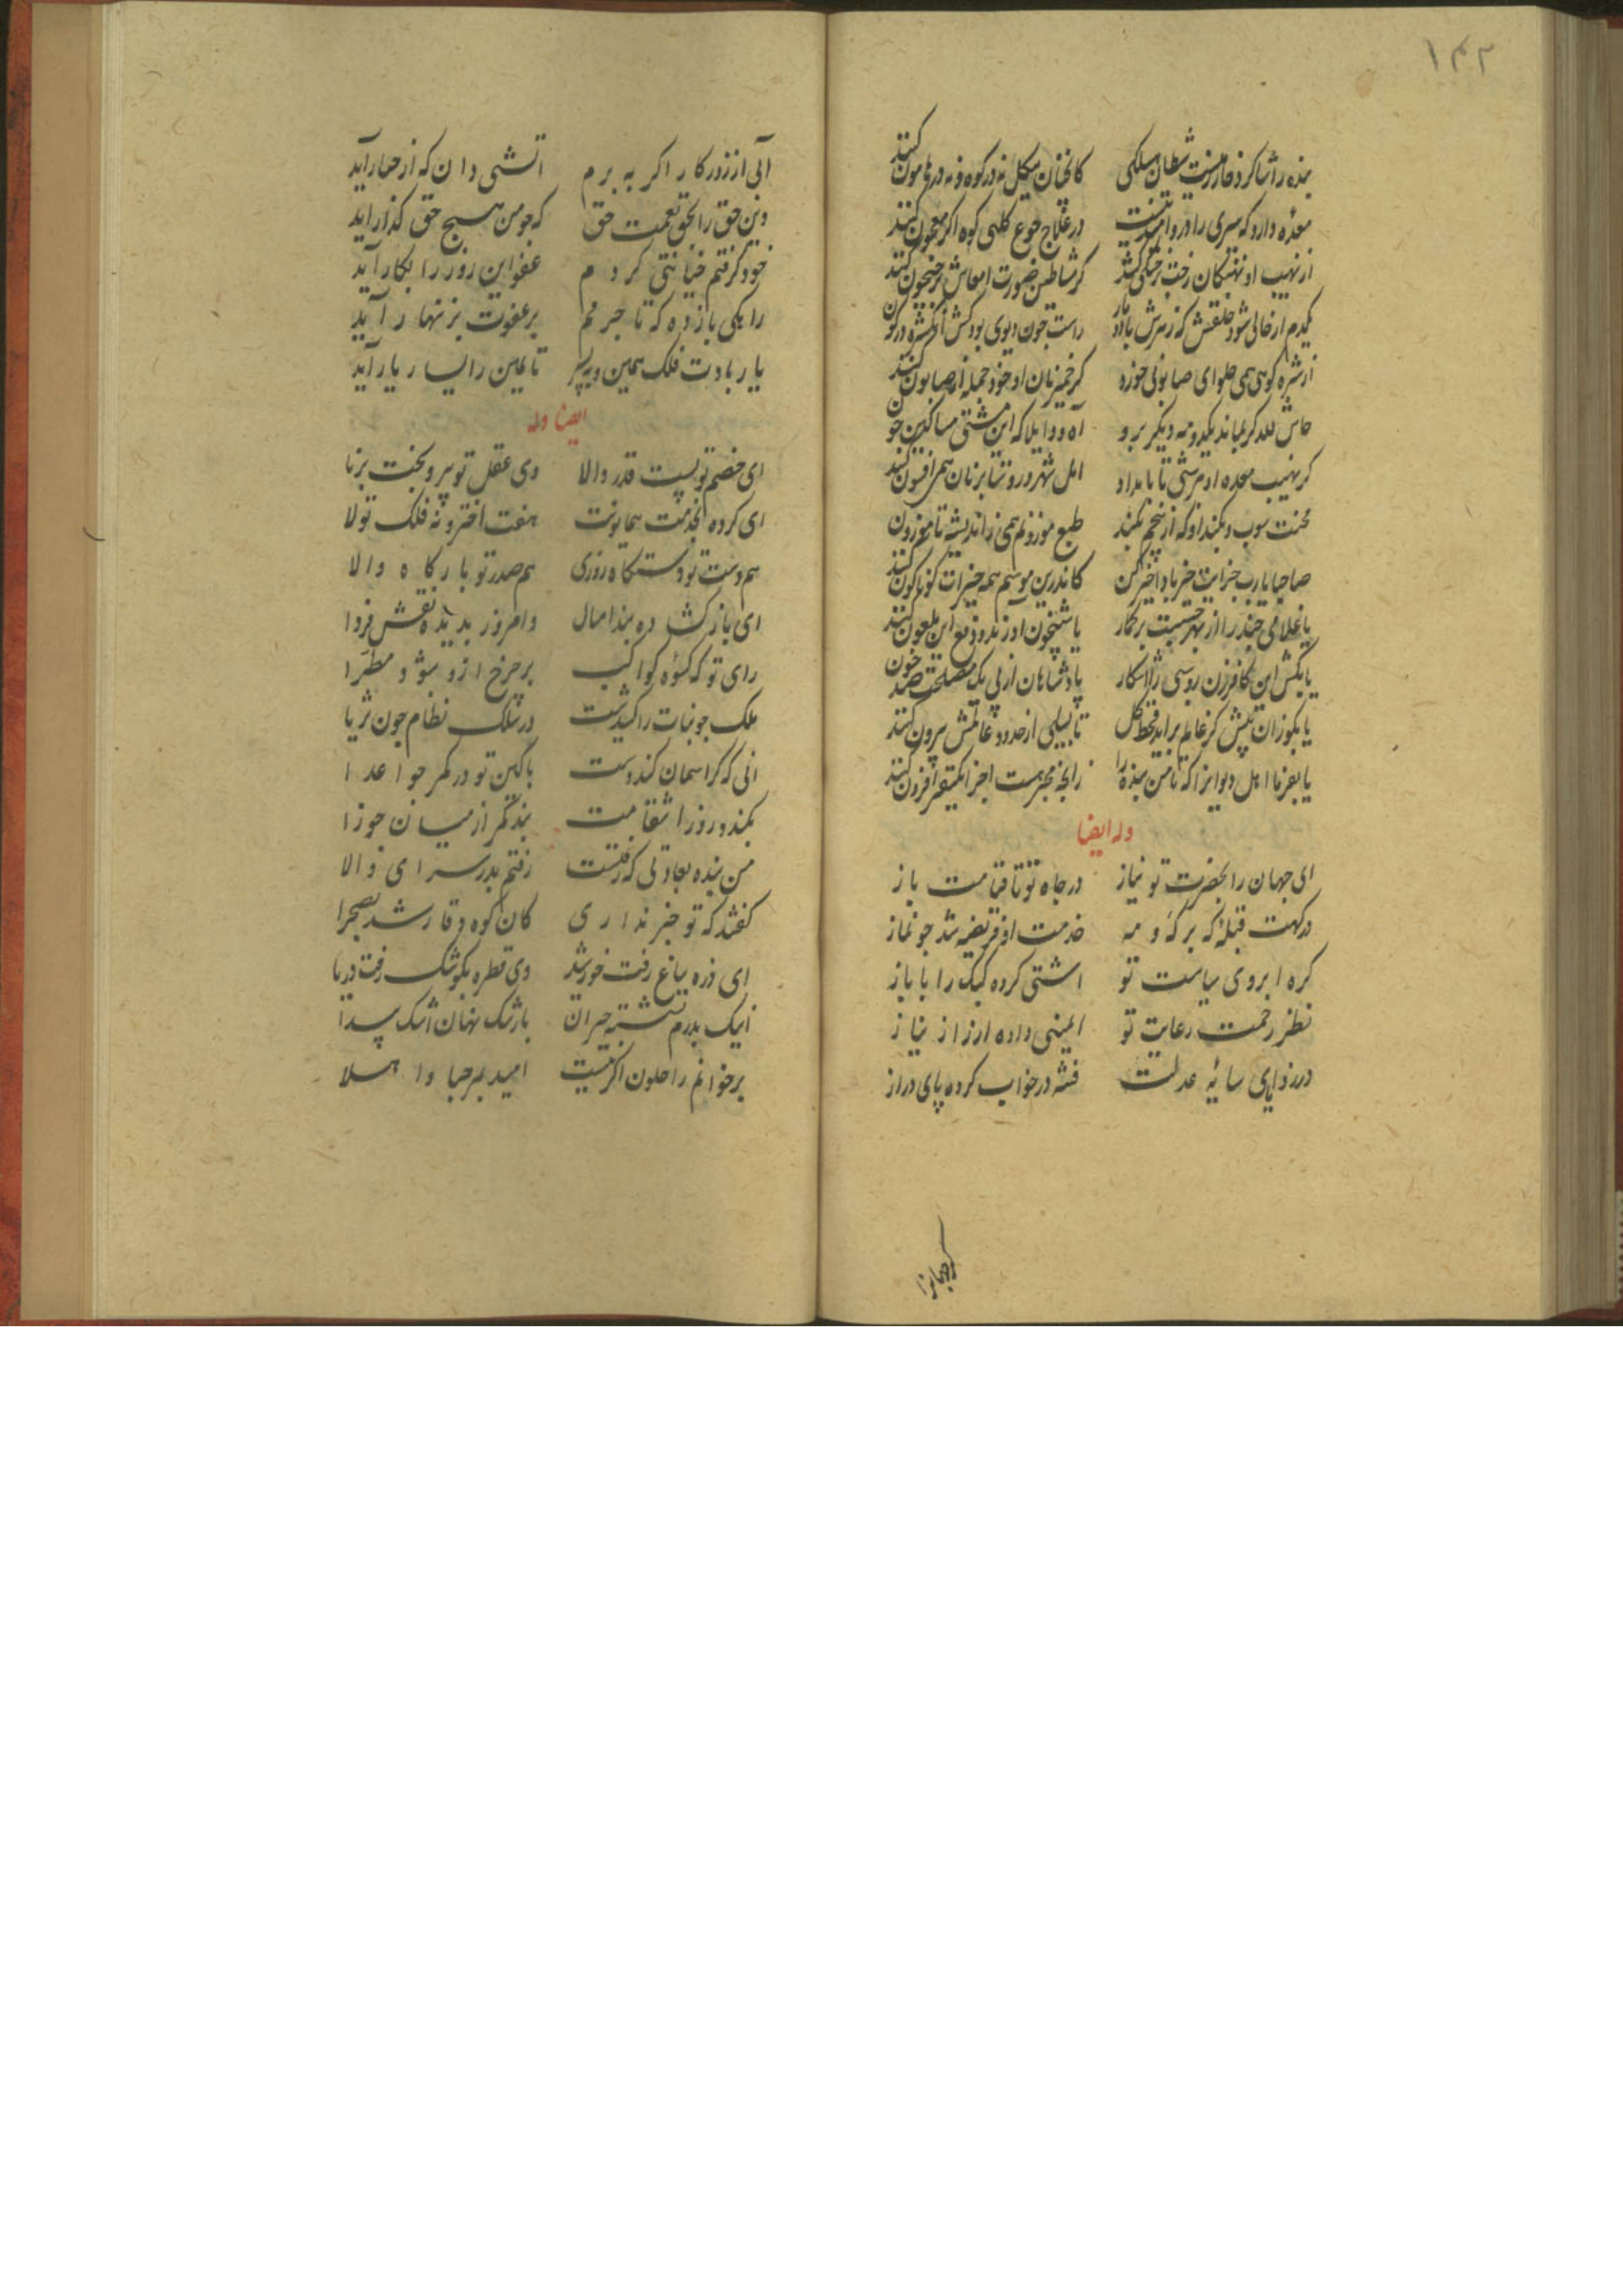 ۱۴۲
بنده را شاکرد فارهست شیطان هیکلی کانچنان هیکل نه در کوه و نه در هامون کنند
معده دارد که سیری را درو امید نیست در علاج جوع کلبی کوه اکر معجون کنند
از نهیب او نهنکان رخت بر خشکی کشند کر شیاطین صورت امعاش بر جیحون کنند
یکدم ار خالی شود حلقش که زهرش باد و مار راست چون دیوی بود کش
از شره کوهی همی حلوای صابونی خورد کر خمیر نان او خود جمله از صابون کنند
حاش لله کر بماند یکدو مه دیکر برو آه و واویلا که این مشتی مساکین چون کنند
کر نهیب معده او هر شبی تا بامداد اهل شهر و روستا بر نان همی افسون کنند
طبع موزونم همی ز اندیشه ناموزون کنند
صاحبا یارب جزایت خیر باد کاندرین موسم همه خیرات کوناکون کنند
یا غلامی چند را از بهر حسبت بر کمار تا شبیخون آورند و دفع این ملعون کنند
یا بکش این کافر زن روسپی را آشکار پادشاهان از پی یک مصلحت صد خون کنند
یا بکو زان پیش کز عالم برآید قحط کل تا بسیلی از حدود عالمش بیرون کنند
یا بفرما اهل دیوانرا که تا من بنده را زانچه مجریست اجرا یکقفیز افزون کنند
وله ایضا
ای جهان را بحضرت تو نیاز در جاه تو تا قیامت باز
درکهت قبلهٔ که بر که و مه خدمت او فریضه شد چو نماز
کره ابروی سیاست تو اشتی کرده کبک را با باز
نظر رحمت رعایت تو ایمنی داده ارز از نیاز
در درازای سایهٔ عدلت فتنه در خواب کرده پای دراز
آبی از روزکار اکر به برم اتشی دان که از چنار آید
وین حق را بحق نعمت حق که چو من هیچ حق کذار آید
خود کرفتم خیانتی کردم عفو این روز را بکار آید
بر عفوت بزینهار آید
یا رب ادت فلک همین و یسر تا یمین را یسار یار آید
ایضا وله
ای خصم تو پست قدر والا وی عقل تو پیر و بخت برنا
ای کرده بخدمت همایونت هفت اختر و نه فلک تولا
هم دست تو دستکاه روزی هم صدر تو بارکاه والا
ای باز کشاده بند امسال وامروز بدیده نقش فردا
رای تو که کسوه کواکب بر چرخ ازو شود مطرا
ملک چو بنات را کشیدست در سلک نظام چون ثریا
انی که کر اسمان کند دست با کین تو در کمر چو اعدا
بکند و روز انتقامت بند کمر از میان جوزا
من بنده بعادتی که رفتست رفتم بدر سرای والا
کفتند که تو خبر نداری کان کوه وقار شد بصحرا
ای ذره بباغ رفت خورشید وی قطره بکوشک رفت دریا
اینک بدرم نشسته حیران با رشک نهان و اشک پیدا
بر خوانم راحلون اکر نیست امید بمرحبا و اهلا
کر جهانرا